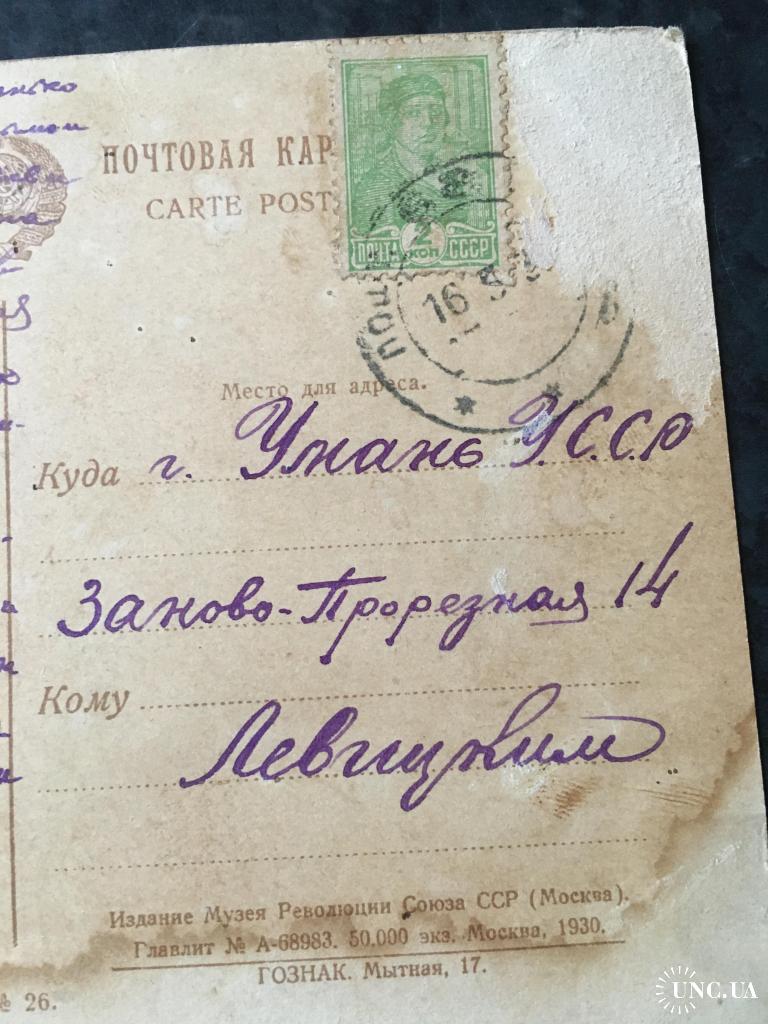 ПОЧТОВАЯ КАР
CARTE POST
ПОЧТА 2 КОП СССР
16
Место для адреса.
Куда г. Умань У.С.С.Р
Заново-Прорезная 14
Кому
Левицким
Издание Музея Революции Союза ССР (Москва).
Главлит № А-68983. 50.000 экз. Москва, 1930.
ГОЗНАК. Мытная, 17.
№ 26.
UNC.UA